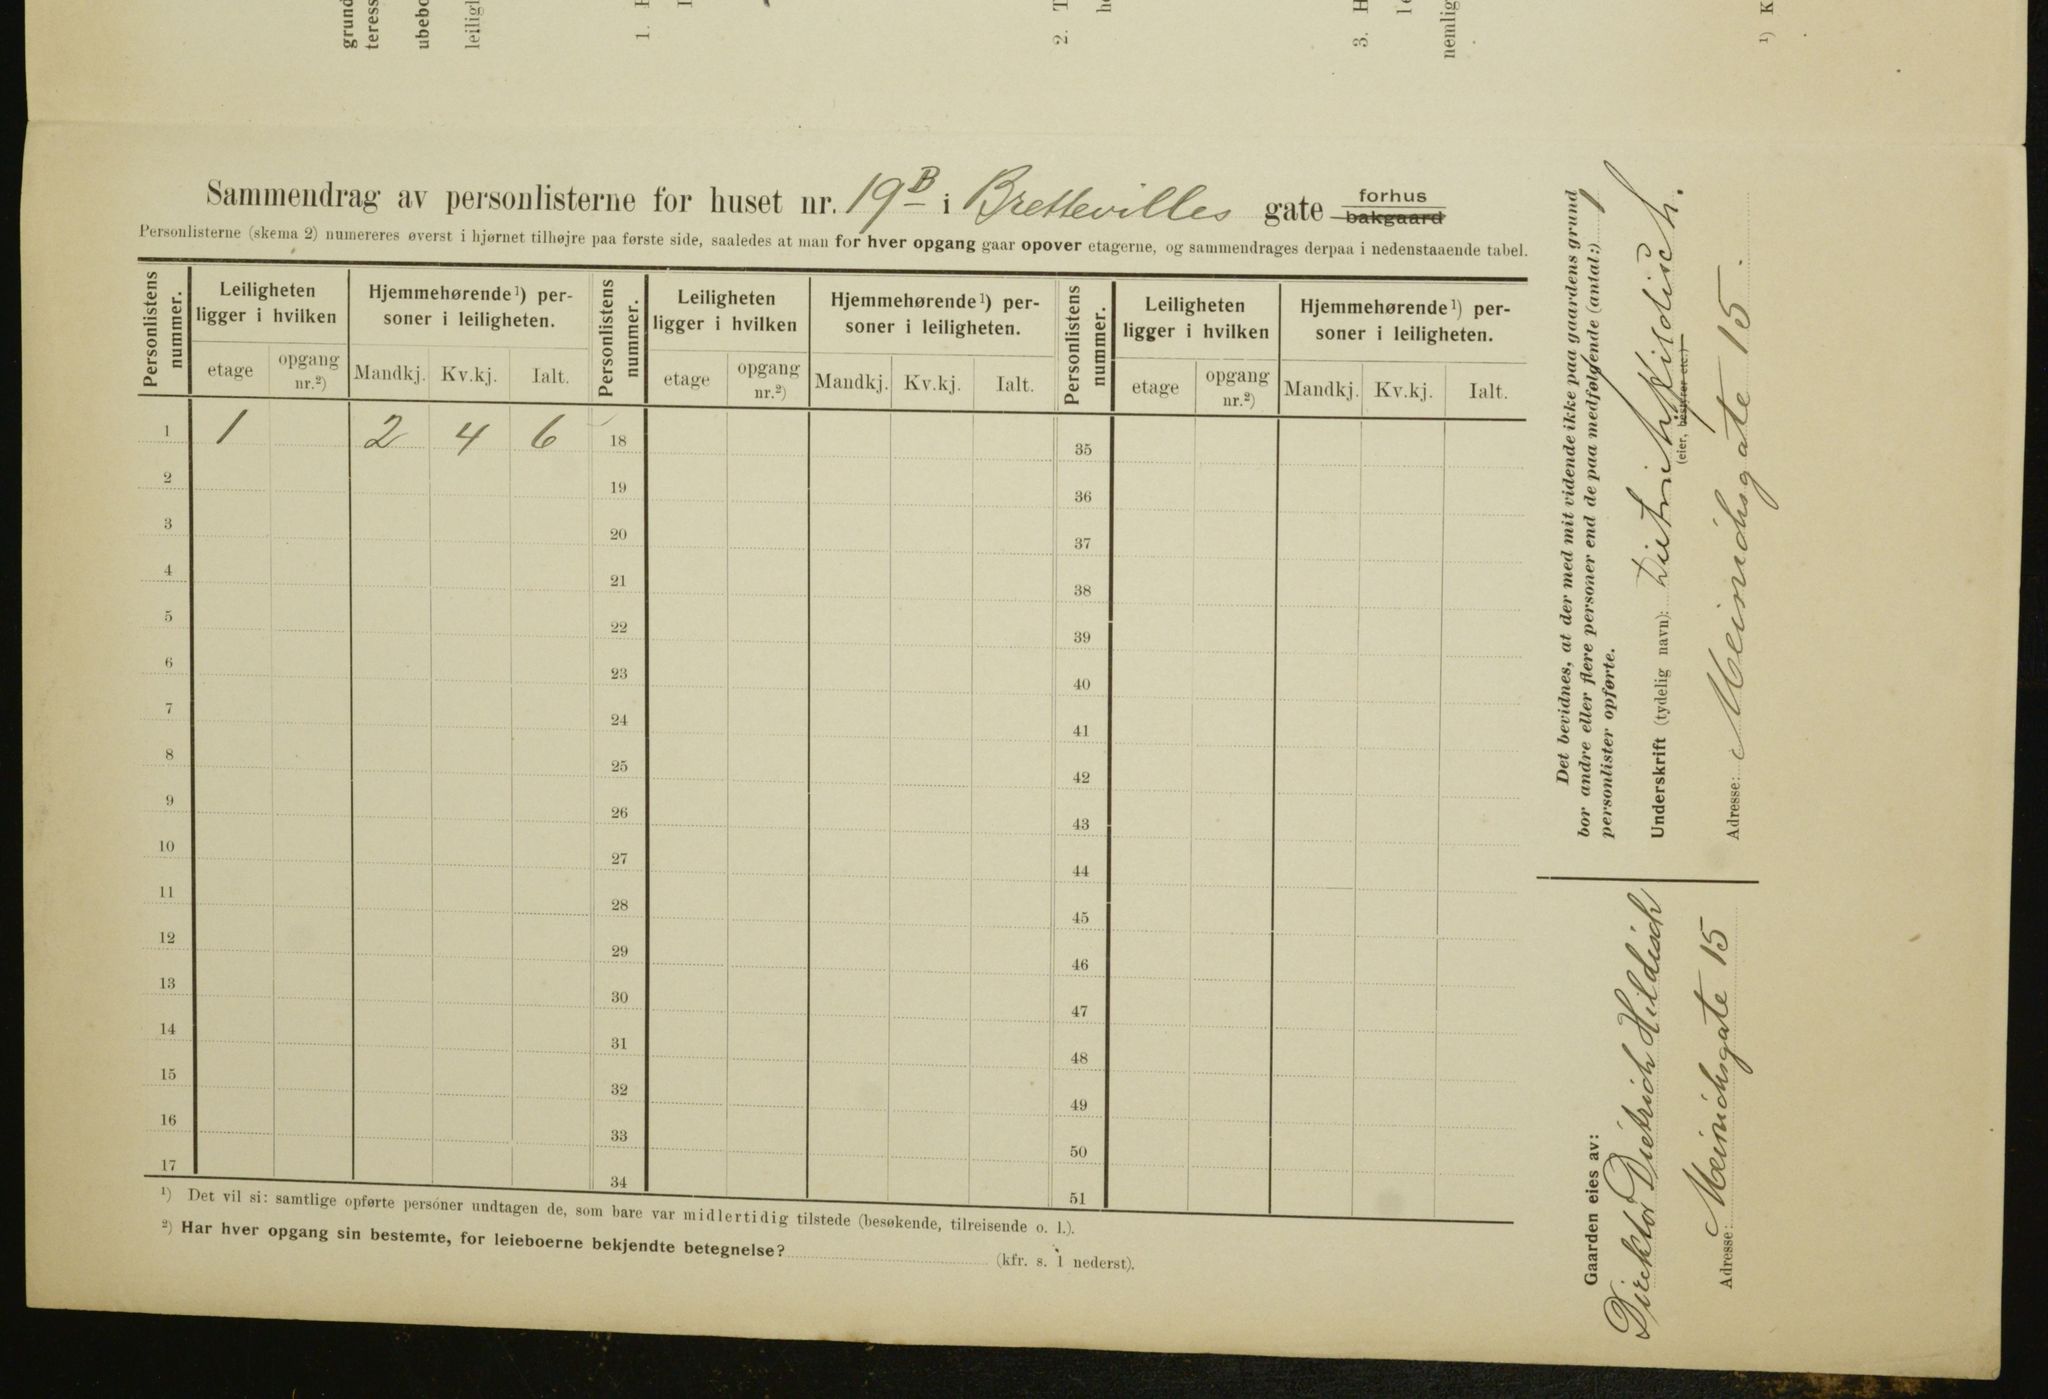 grund
teress
ubebo
leiligh
1.
2. T
3. H
nemlig
¹) K
Sammendrag av personlisterne for huset nr. 19B i Brettevilles gate forhus bakgaard
Personlisterne (skema 2) numereres øverst i hjørnet tilhøjre paa første side, saaledes at man for hver opgang gaar opover etagerne, og sammendrages derpaa i nedenstaaende tabel.
Personlistens nummer. Leiligheten ligger i hvilken Hjemmehørende¹) personer i leiligheten. Personlistens nummer. Leiligheten ligger i hvilken Hjemmehørende¹) personer i leiligheten. Personlistens nummer. Leiligheten ligger i hvilken Hjemmehørende¹) personer i leiligheten.
etage opgang nr.²) Mandkj. Kv.kj. Ialt. etage opgang nr.²) Mandkj. Kv.kj. Ialt. etage opgang nr.²) Mandkj. Kv.kj. Ialt.
1 1 2 4 6 18 35
2 19 36
3 20 37
4 21 38
5 22 39
6 23 40
7 24 41
8 25 42
9 26 43
10 27 44
11 28 45
12 29 46
13 30 47
14 31 48
15 32 49
16 33 50
17 34 51
¹) Det vil si: samtlige opførte persóner undtagen de, som bare var midlertidig tilstede (besøkende, tilreisende o. l.).
²) Har hver opgang sin bestemte, for leieboerne bekjendte betegnelse? (kfr. s. 1 nederst).
Det bevidnes, at der med mit vidende ikke paa gaardens grund
bor andre eller flere personer end de paa medfølgende (antal:) 1
personlister opførte.
Underskrift (tydelig navn): Dietrich Hildisch.
(eier, bestyrer etc.)
Adresse: Meinichsgate 15.
Gaarden eies av:
Direktør Dietrich Hildisch
Adresse: Meinichsgate 15